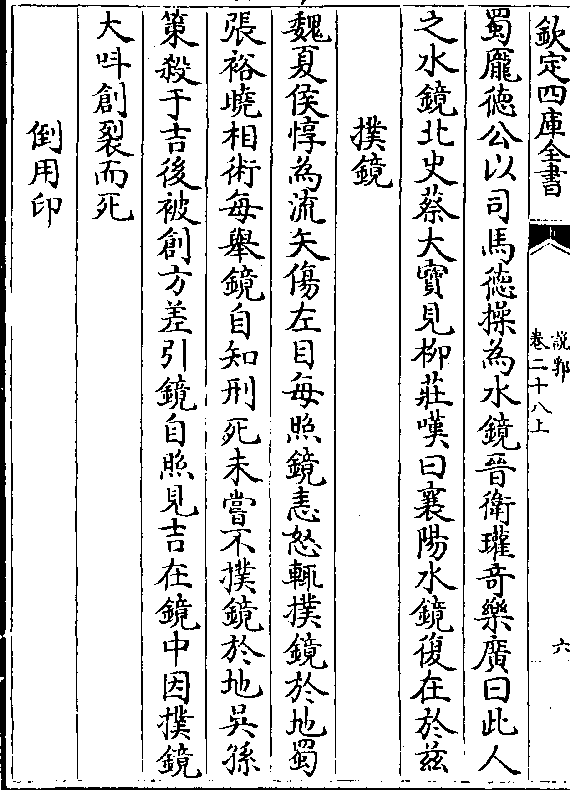 欽定四庫全書
說郛
卷二十八上
六
蜀龎徳公以司馬徳操為水鏡晉衛瓘竒樂廣曰此人
之水鏡北史蔡大寳見柳莊嘆曰襄陽水鏡復在於兹
撲鏡
魏夏侯惇為流矢傷左目每照鏡恚怒輒撲鏡於地蜀
張裕曉相術每舉鏡自知刑死未嘗不撲鏡於地吳孫
策殺于吉後被創方差引鏡自照見吉在鏡中因撲鏡
大呌創裂而死
倒用印